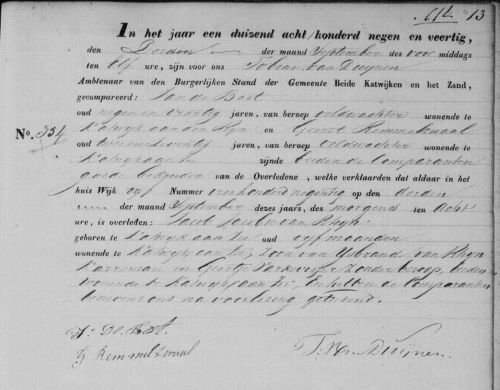 13
In het jaar een duizend acht/honderd negen en veertig,
den Derden der maand September des voor middags
ten Elf ure, zijn voor ons van Duijnen
Ambtenaar van den Burgerlijken Stand der Gemeente Beide Katwijken en het Zand,
gecompareerd: de Best
oud negenenveertig jaren, van beroep veldwachter wonende te
Katwijk aan den Rijn en Gerrit Remmelzwaal
oud jaren, van beroep veldwachter wonende te
Katwijk aan Zee zijnde beiden de Comparanten
goede bekenden van de Overledene, welke verklaarden dat aldaar in het
No. 334
huis Wijk vijf Nummer vierhonderd negentig op den derden
der maand September dezes jaars, des morgens ten Acht
ure, is overleden: Jacob van Rhijn
geboren te Katwijk aan Zee oud vijf maanden
wonende te Katwijk aan Zee, Zoon van IJsbrand van Rhijn
en Geertje zonder beroep, beiden
wonende te Katwijk aan Zee, En hebben de Comparanten
benevens ons na voorlezing geteekend.
de Best
G Remmelzwaal
T. Van Duijnen